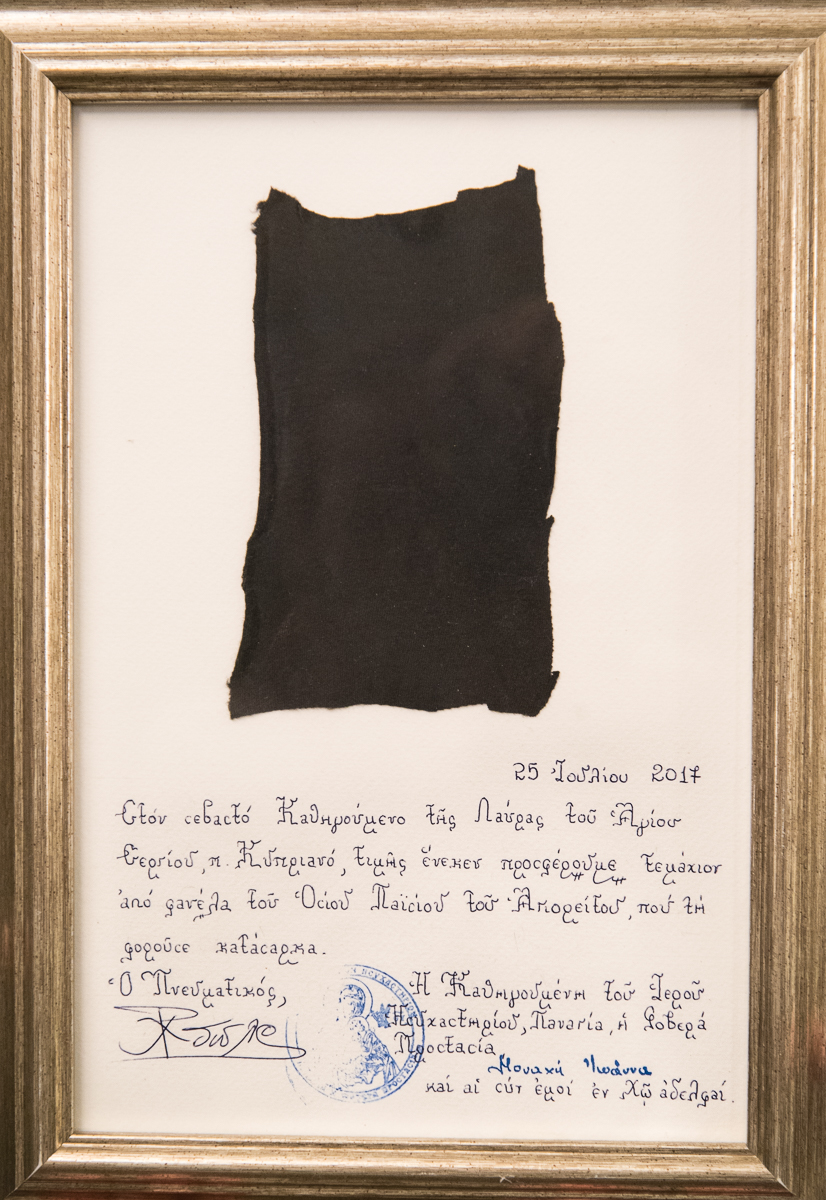 25 Ἰουλίου 2017
Στόν σεβαστό Καθηγούμενο τῆς Λαύρας τοῦ Ἁγίου
Σεργίου, π. Κυπριανό, τιμῆς ἕνεκεν προσφέρουμε τεμάχιον
ἀπό φανέλα τοῦ Ὁσίου Παϊσίου τοῦ Ἁγιορείτου, πού τή
φοροῦσε κατάσαρκα.
Ὁ Πνευματικός,
Ἡ Καθηγουμένη τοῦ Ἱεροῦ
Ἡσυχαστηρίου, Παναγία, ἡ Φοβερά
Προστασία
Μοναχή Ἰωάννα
καί αἱ σύν ἐμοί ἐν Χῷ ἀδελφαί.